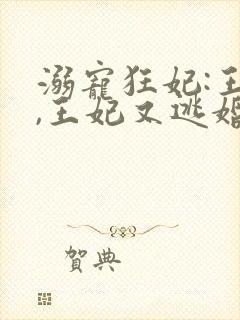 溺寵狂妃:王
,王妃又逃婚
賀典